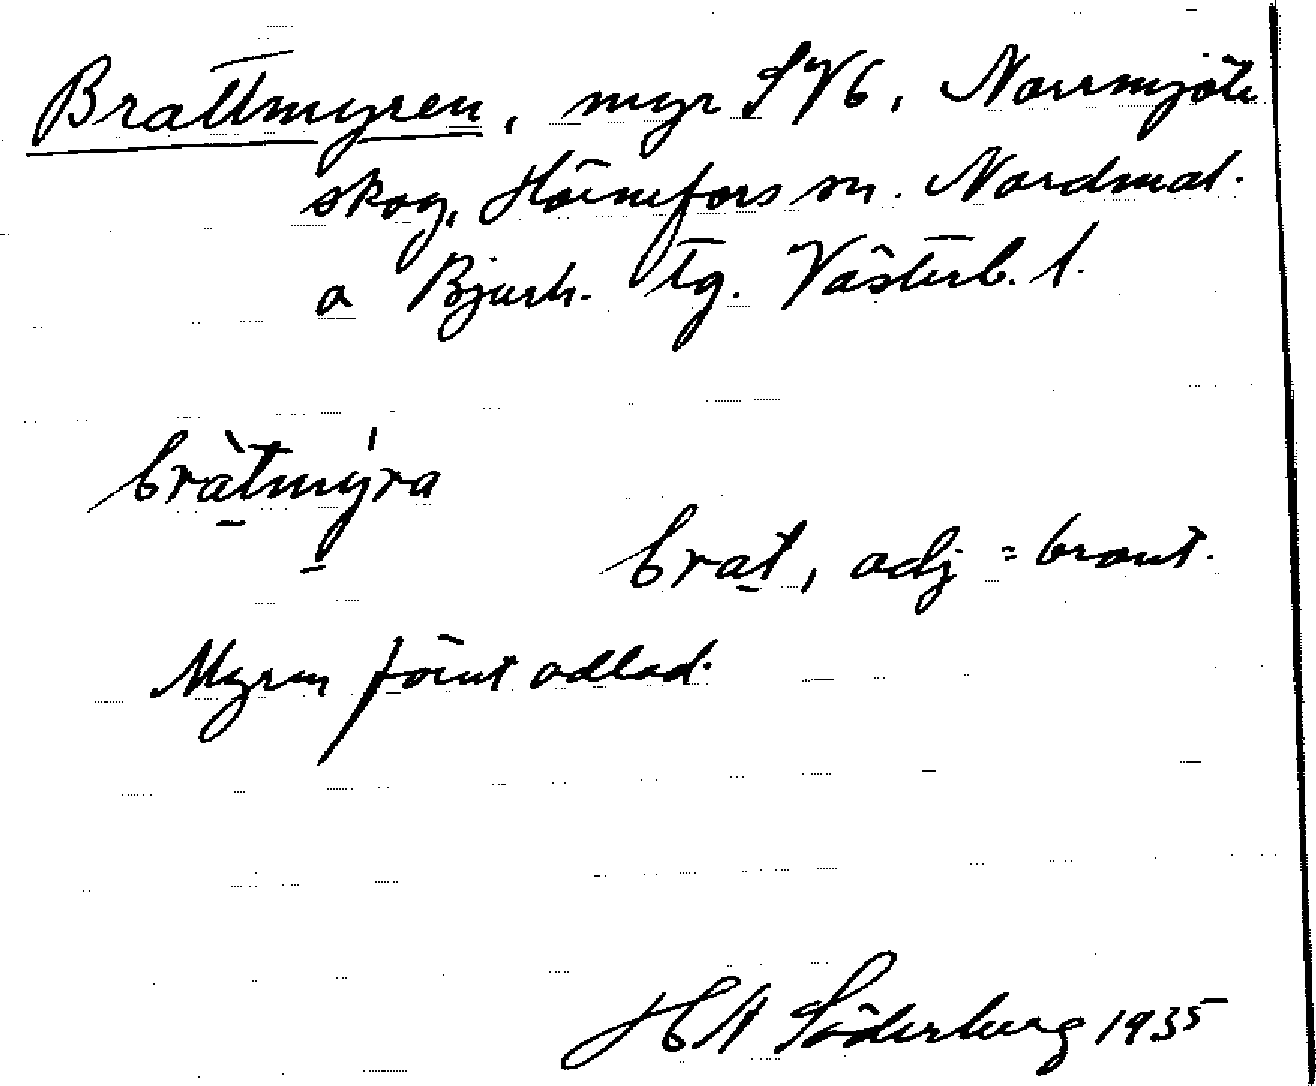 Brattmyren, myr SV6, Norrmjöle
skog, Hörnefors sn. Nordmal.
o Bjurh. tg. Västerb. l.
bràtmýra
brat, adj = brant.
Myren förut odlad.
H A Söderberg 1935